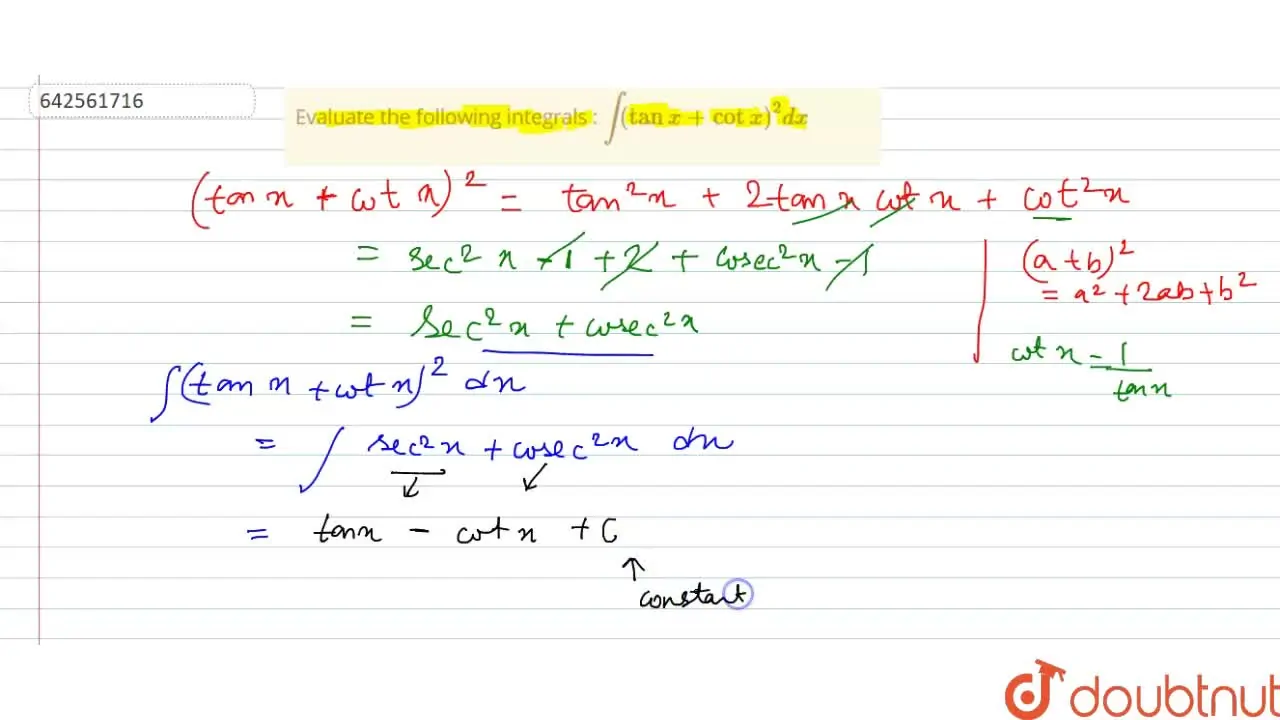 642561716
Evaluate the following integrals : ∫(tan x + cot x)² dx
(tan x + cot x)² = tan²x + 2tan x cot x + cot²x
= sec² x - 1 + 2 + cosec²x - 1
(a + b)²
= a² + 2ab + b²
= sec²x + cosec²x
cot x = 1/tan x
∫(tan x + cot x)² dx
= ∫ sec²x + cosec²x dx
= tanx - cot x + C
constant
doubtnut